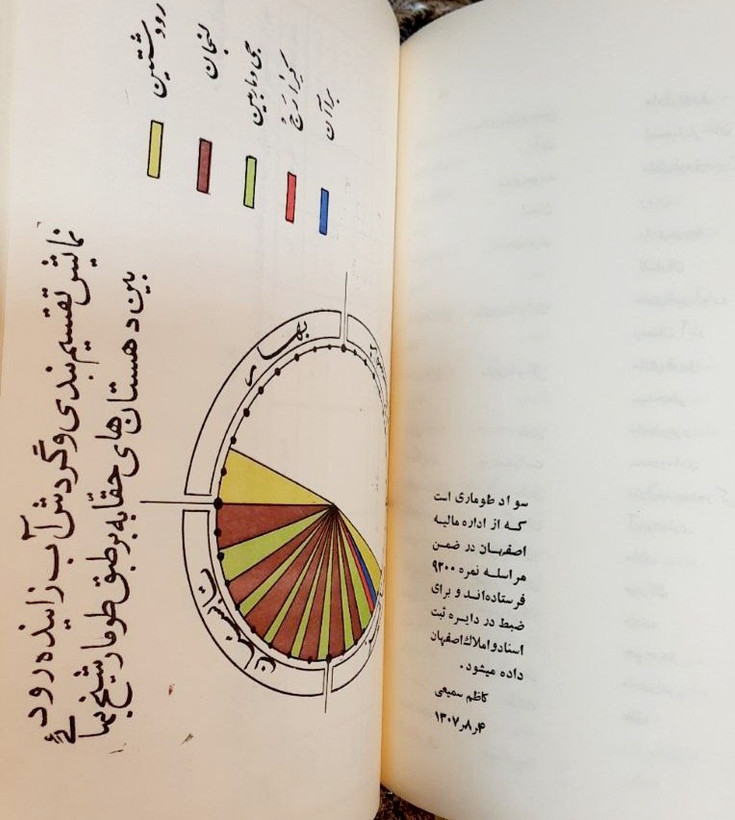 نمایش تقسیم بندی و گردش آب زاینده رود
بین دهستان های حقابه بر طبق طومار شیخ بها
ئی
رودشتین
لنجان
جی و ماربین
کرارج
برآآن
بهار
تابستان
سواد طوماری است
که از اداره مالیه
اصفهان در ضمن
مراسله نمره ۹۲۰۰
فرستاده‌اند و برای
ضبط در دایره ثبت
اسناد و املاک اصفهان
داده میشود.
کاظم سمیعی
۴ر۸ر۱۳۰۷